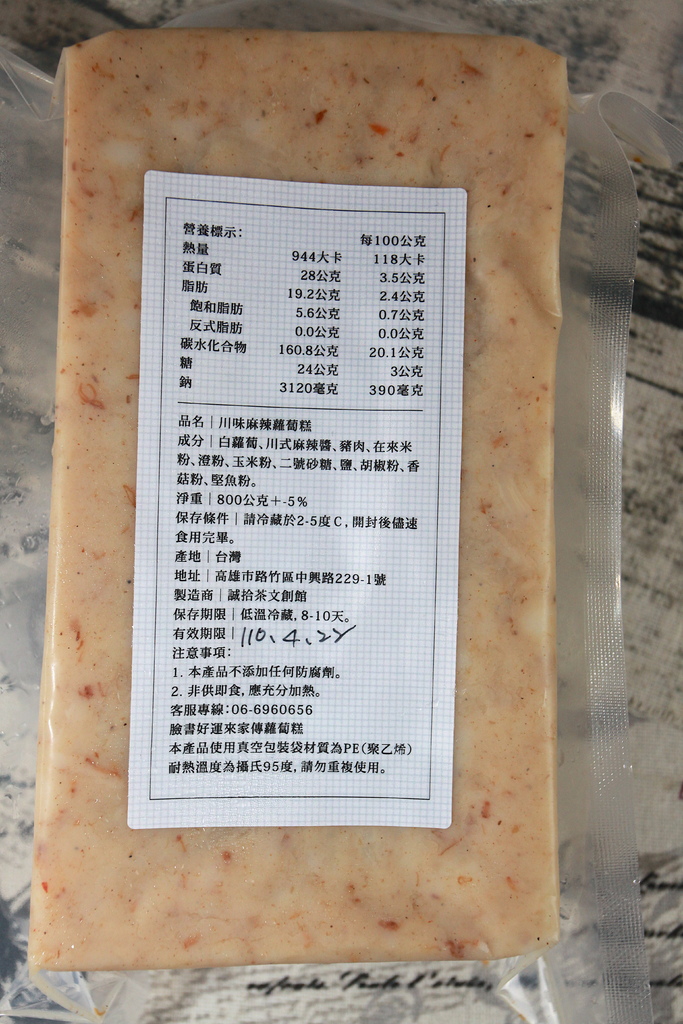 營養標示: 每100公克
熱量 944大卡 118大卡
蛋白質 28公克 3.5公克
脂肪 19.2公克 2.4公克
飽和脂肪 5.6公克 0.7公克
反式脂肪 0.0公克 0.0公克
碳水化合物 160.8公克 20.1公克
糖 24公克 3公克
鈉 3120毫克 390毫克
品名｜川味麻辣蘿蔔糕
成分｜白蘿蔔、川式麻辣醬、豬肉、在來米
粉、澄粉、玉米粉、二號砂糖、鹽、胡椒粉、香
菇粉、堅魚粉。
淨重｜800公克+-5%
保存條件｜請冷藏於2-5度C，開封後儘速
食用完畢。
產地｜台灣
地址｜高雄市路竹區中興路229-1號
製造商｜誠拾茶文創館
保存期限｜低溫冷藏，8-10天。
有效期限｜110.4.28
注意事項：
1. 本產品不添加任何防腐劑。
2. 非供即食，應充分加熱。
客服專線：06-6960656
臉書好運來家傳蘿蔔糕
本產品使用真空包裝袋材質為PE(聚乙烯)
耐熱溫度為攝氏95度，請勿重複使用。